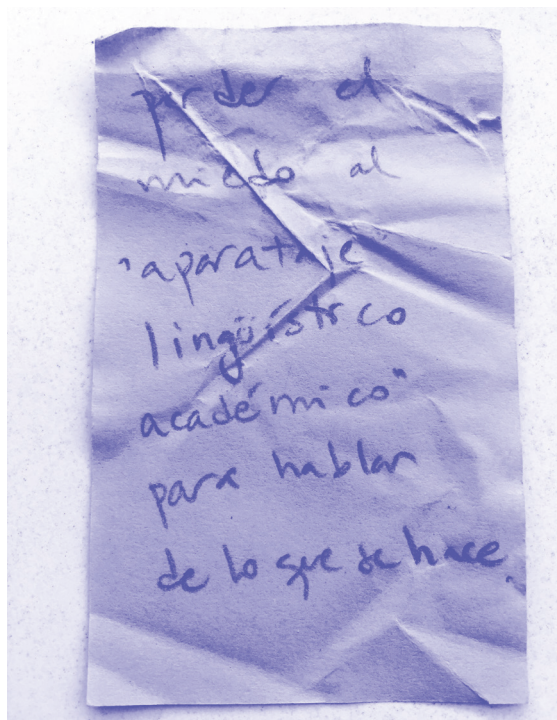 perder el
miedo al
"aparataje
lingüístico
académico"
para hablar
de lo que se hace.